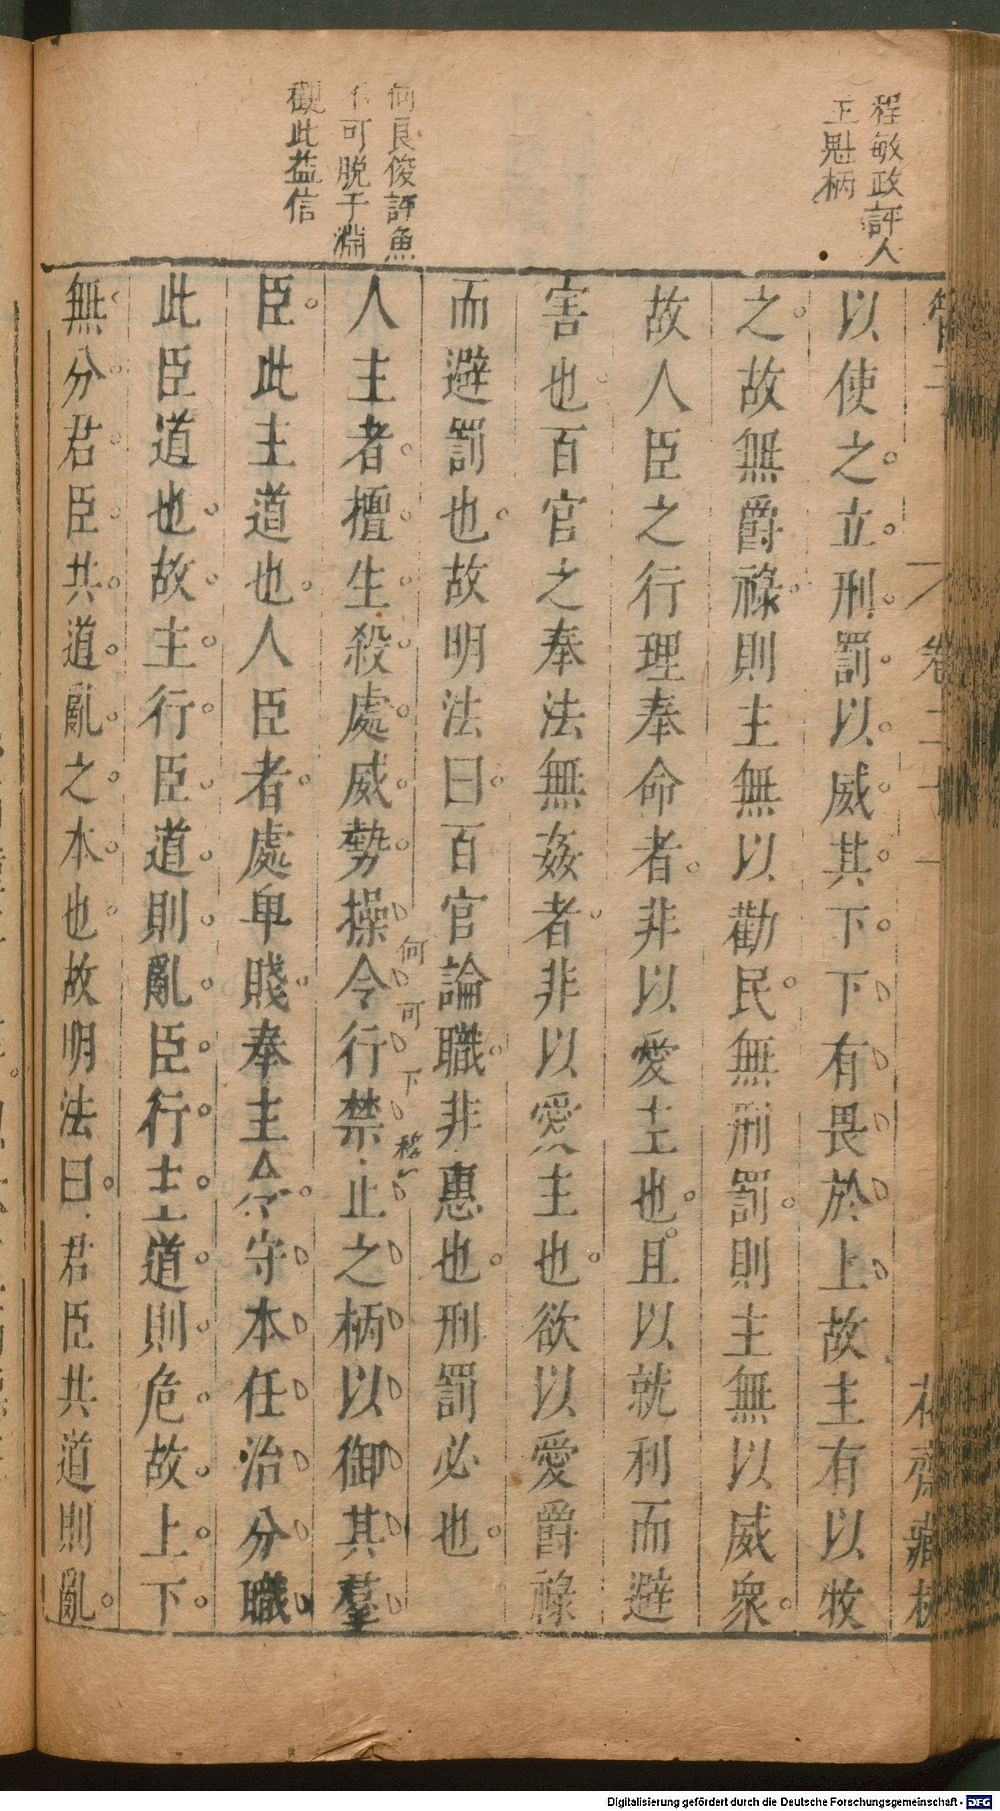 程敏政評人
主魁柄
何良俊評魚
不可脫于淵
觀此益信
管子
卷二十一
花齋藏板
以使之立刑罰以威其下下有畏於上故主有以牧
之故無爵祿則主無以勸民無刑罰則主無以威眾
故人臣之行理奉命者非以愛主也且以就利而避
害也百官之奉法無姦者非以愛主也欲以愛爵祿
而避罰也故明法曰百官論職非惠也刑罰必也
人主者擅生殺處威勢操令行禁止之柄以御其羣
何可下移
臣此主道也人臣者處卑賤奉主令守本任治分職
此臣道也故主行臣道則亂臣行主道則危故上下
無分君臣共道亂之本也故明法曰君臣共道則亂
Digitalisierung gefördert durch die Deutsche Forschungsgemeinschaft - DFG